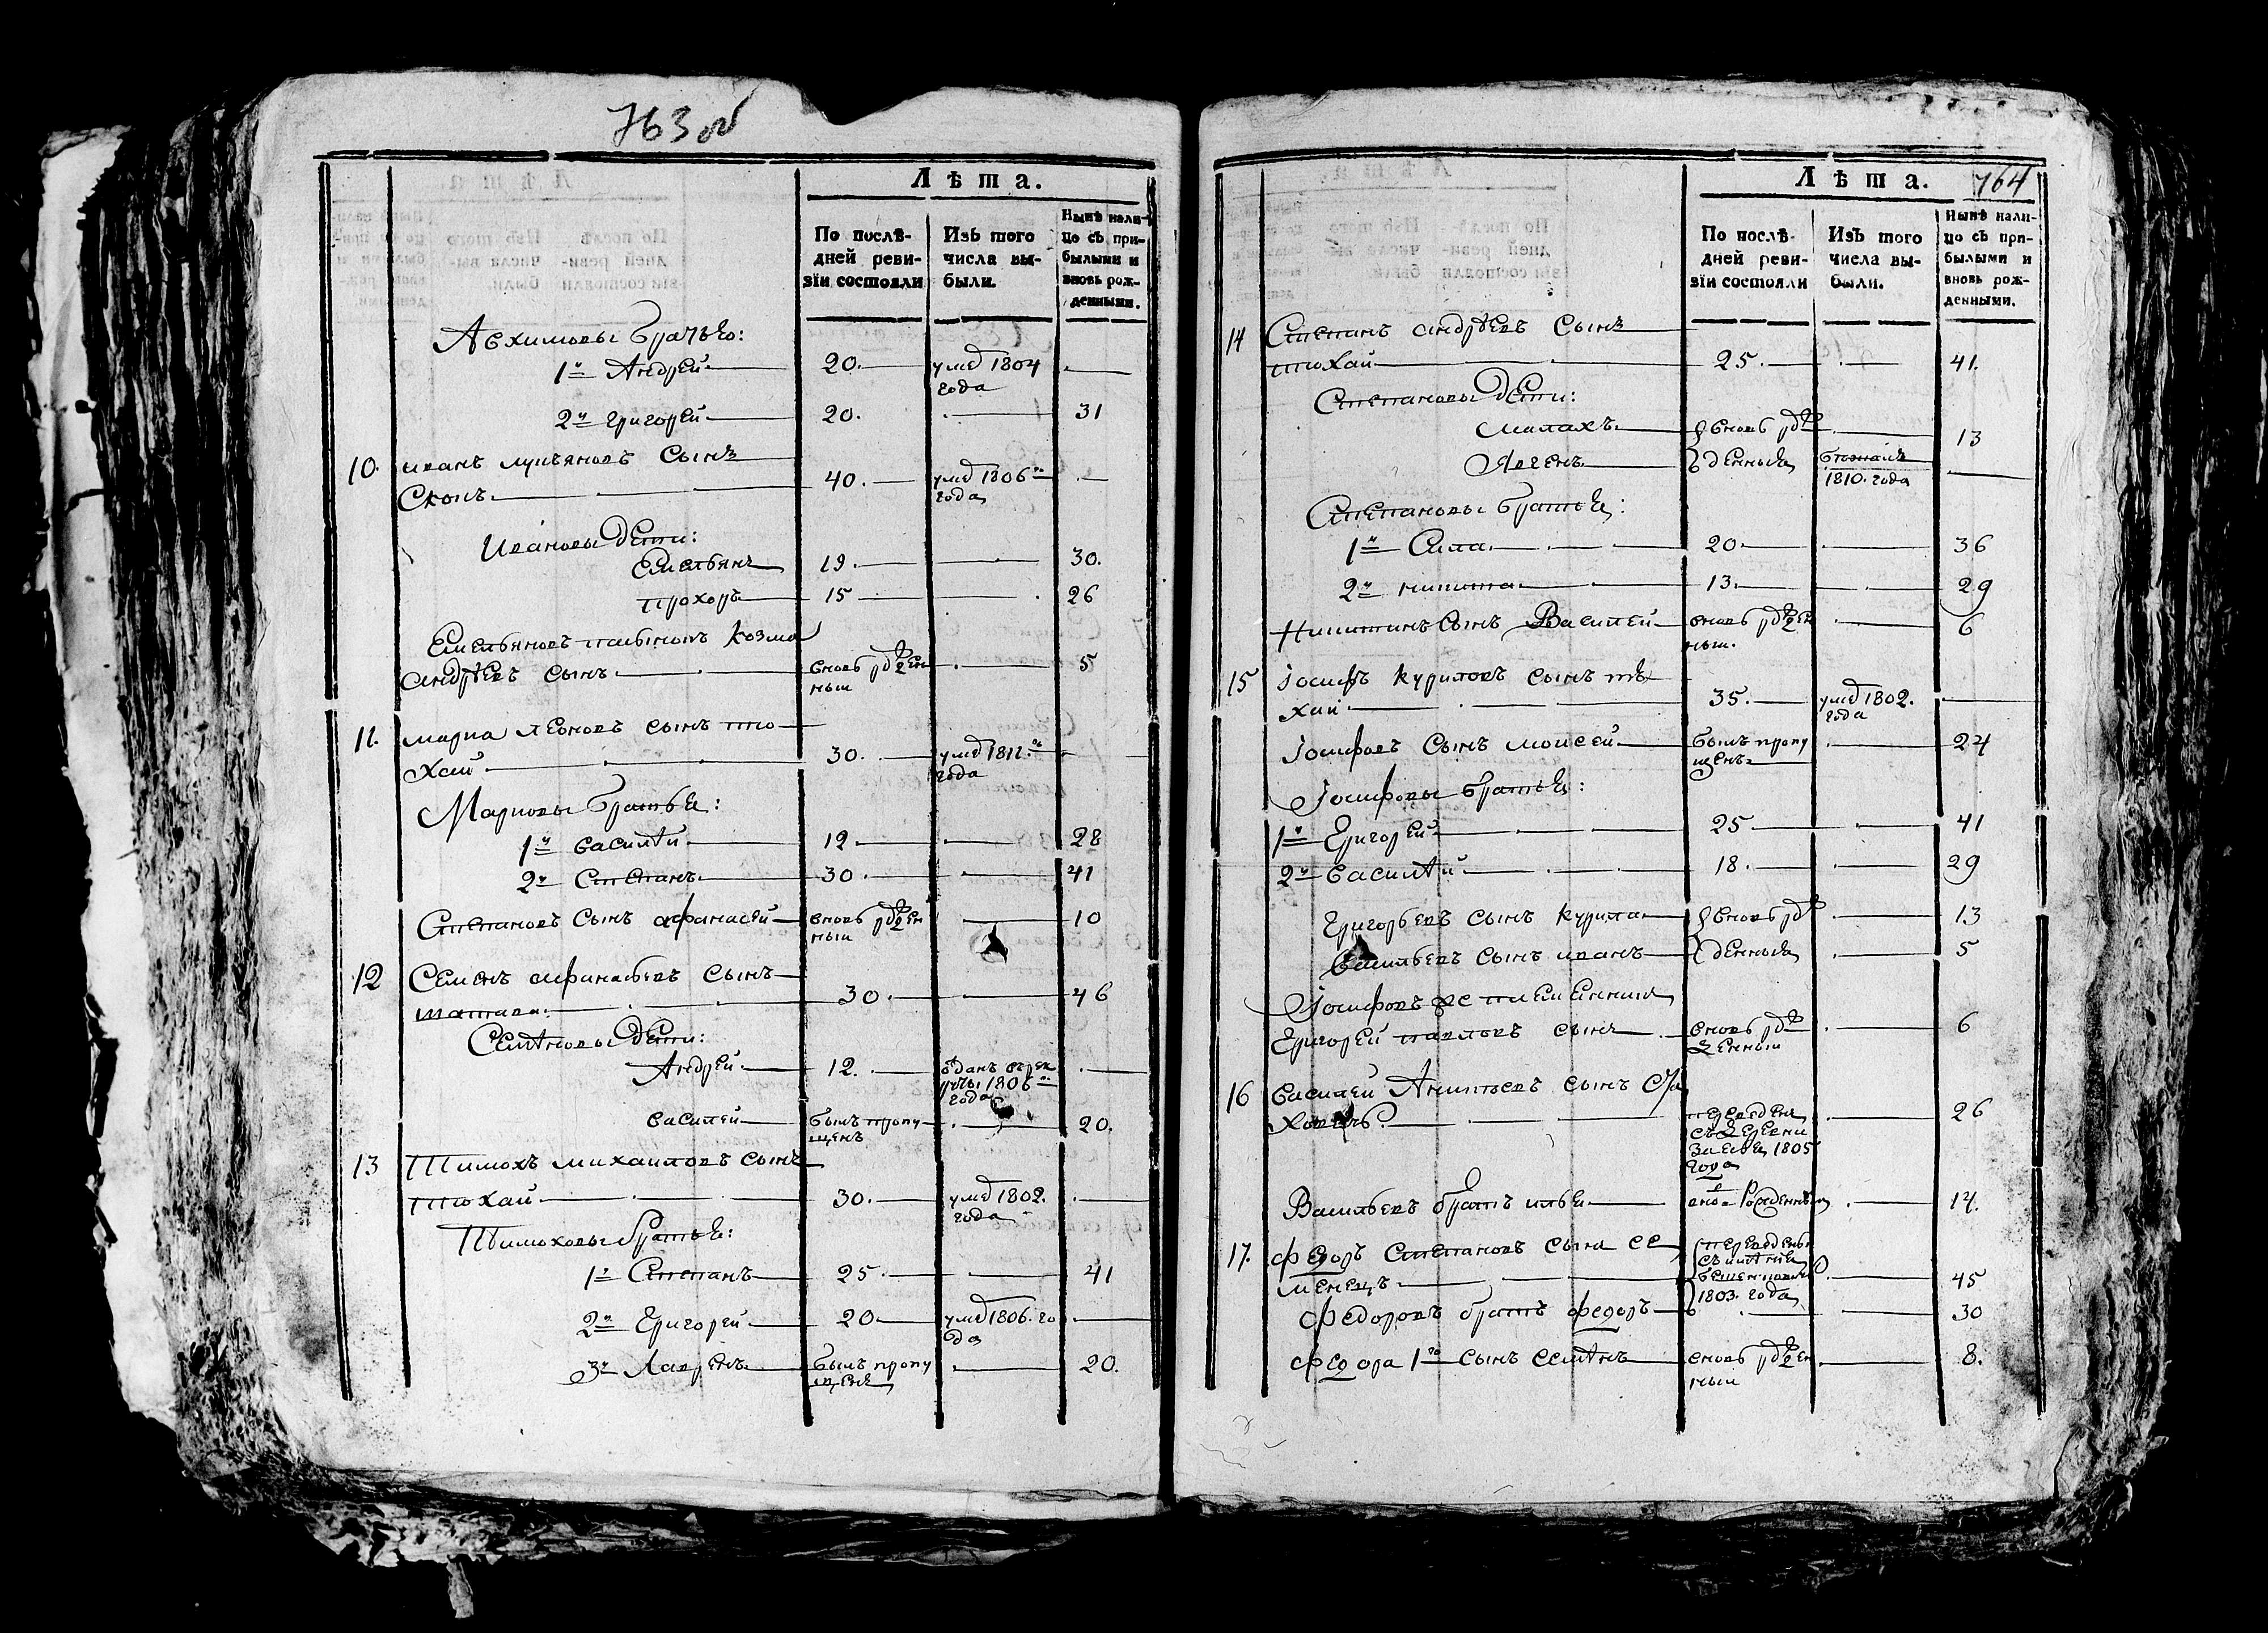 763 об
Лѣта.
По послѣ-
дней реви-
зіи состояли
Изъ того
числа вы-
были.
Нынѣ нали-
цо съ при-
былыми и
вновь рож-
денными.
Авхимовы братья:
1й Андрей 20. умеръ 1804
года
2й григорей 20. 31
10. иванъ лукьяновъ сынъ
Скокъ 40. умеръ 1806го
года
Ивановы дети:
Емельянъ 19. 30.
прохоръ 15 26
Емельяновъ козма
андрѣевъ сынъ вновь рожден
ныи 5
11. марка леоновъ сынъ по
хай 30. умеръ 1811го
года
Марковы братья:
1й василѣй 12. 28
2й Степанъ 30. 41
Степановъ сынъ афанасей вновь рожден
ныи 10
12 Семенъ афанасьевъ сынъ
30. 46
Семѣновы дети:
Андрей 12. отданъ въ рек
руты 1806го
года
василей былъ пропу
щенъ 20.
13 Тимохъ михаиловъ сынъ
похай 30. умеръ 1802.
года
Тимоховы братья:
1й Степанъ 25. 41
2й Григорей 20 умеръ 1806. го
да
3й Лавренъ былъ пропу
щенъ 20.
764
Лѣта.
По послѣ-
дней реви-
зіи состояли
Изъ того
числа вы-
были.
Нынѣ нали-
цо съ при-
былыми и
вновь рож-
денными.
14 Степанъ андрѣевъ сынъ
похай 25. 41.
Степановы дети:
малахъ вновь рож 13
Явгенъ денныя
1810. года
Степановы братья:
1й Сила 20 36
2й никита 13. 29
Никитинъ сынъ Василей вновь рожден
ныи. 6
15 Іосифъ куриловъ сынъ
хай 35. умеръ 1802.
года
Іосифовъ сынъ моисей былъ пропу
щенъ 24
Іосифовы братья:
1й Григорей 25 41
2й василѣй 18. 29
Григорьевъ сынъ курила вновь рож 13
Васильевъ сынъ иванъ денныя 5
Іосифовъ же племенникъ
Григорей павловъ сынъ вновь рож
денныи 6
16 василей сынъ
переведен
съ деревни
1805
года 26
Васильевъ братъ илья рожденныи 14.
17. Федоръ Степановъ сынъ се
менецъ переведены
съ имѣнія
1803. года 45
Федоровъ братъ федоръ 30
Федора 1го сынъ семѣнъ вновь рожден
ныи 8.